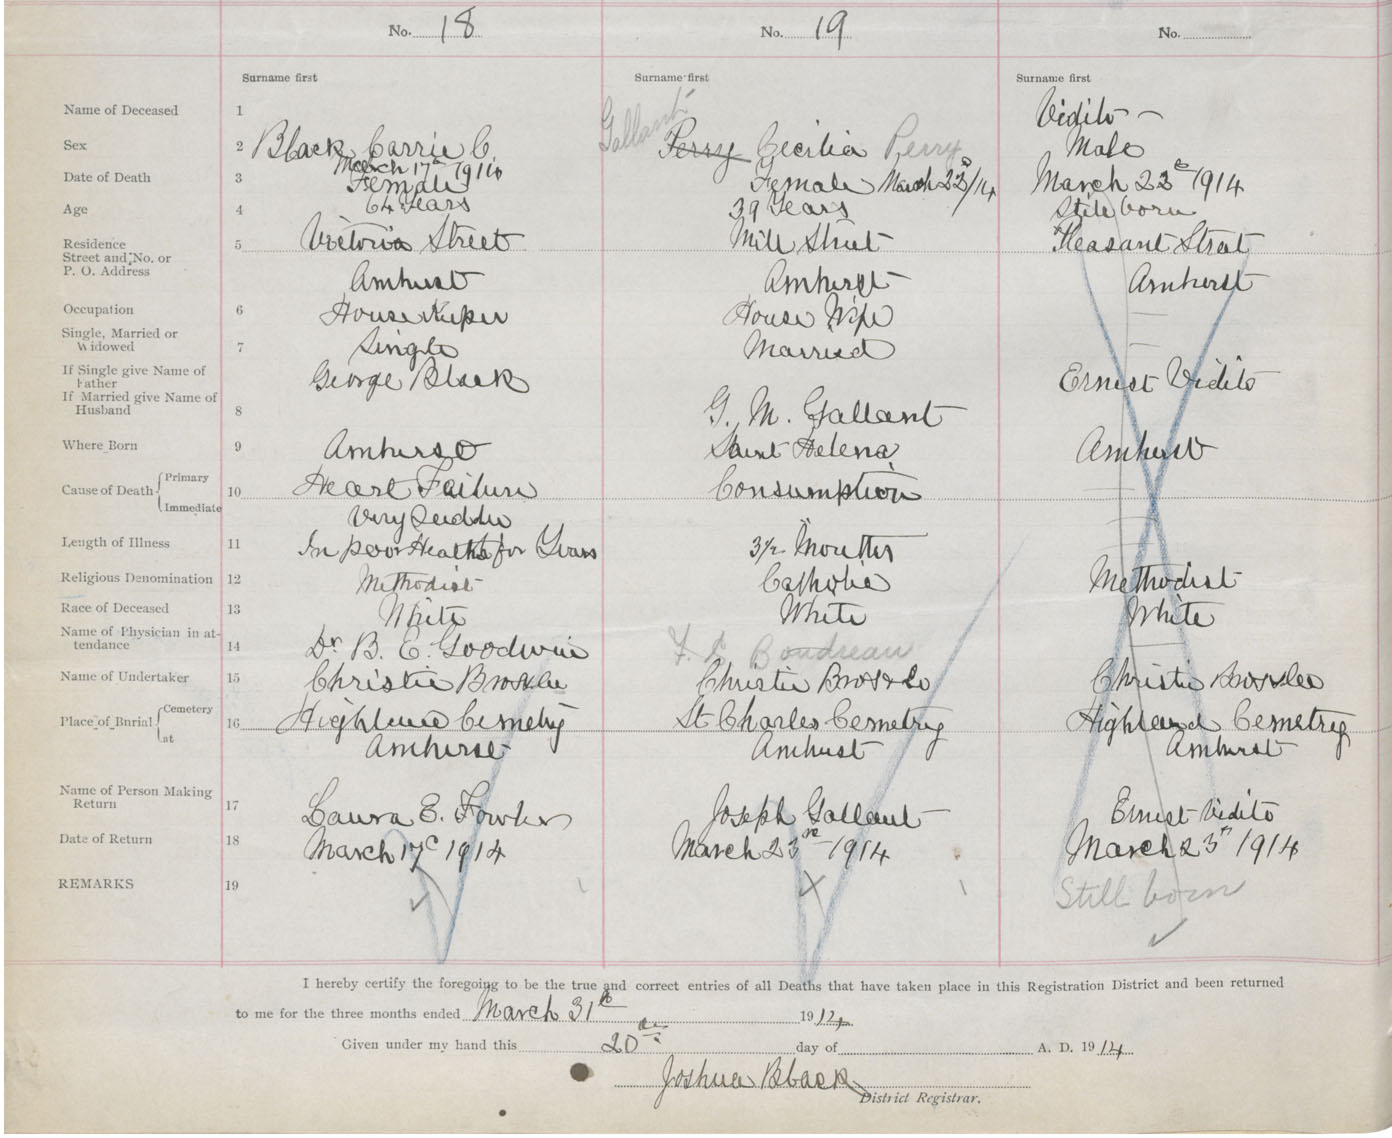 No. 18 No. 19 No.
Surname first Surname first Surname first
Name of Deceased 1 Vidito -
Gallant
Sex 2 Black Carrie C. Perry Cecilia Perry Male
March 17th 1914
Date of Death 3 Female Female March 22/14 March 22d 1914
Age 4 64 Years 39 Years Still born
Residence 5 Victoria Street Mill Street Pleasant Street
Street and No. or
P. O. Address Amherst Amherst Amherst
Occupation 6 House Keeper House Wife —
Single, Married or
Widowed 7 Single Married —
If Single give Name of
Father George Black Ernest Vidito
If Married give Name of
Husband 8 G. M. Gallant
Where Born 9 Amherst Saint Helena Amherst
Cause of Death Primary 10 Heart Failure Consumption —
Immediate Very Sudden —
Length of Illness 11 In poor Health for Years 3½ Months —
Religious Denomination 12 Methodist Catholic Methodist
Race of Deceased 13 White White White
Name of Physician in at-
tendance 14 Dr B. E. Goodwin F. L Boudreau —
Name of Undertaker 15 Christie Bros & Co Christie Bros & Co Christie Bros & Co
Place of Burial Cemetery 16 Highland Cemetry St Charles Cemetry Highland Cemetry
at Amherst Amherst Amherst
Name of Person Making
Return 17 Laura E. Fowler Joseph Gallant Ernest Vidito
Date of Return 18 March 17th 1914 March 23rd 1914 March 23rd 1914
REMARKS 19 Still born
I hereby certify the foregoing to be the true and correct entries of all Deaths that have taken place in this Registration District and been returned
to me for the three months ended March 31st 1914
Given under my hand this 20th day of A. D. 1914
Joshua Black
District Registrar.